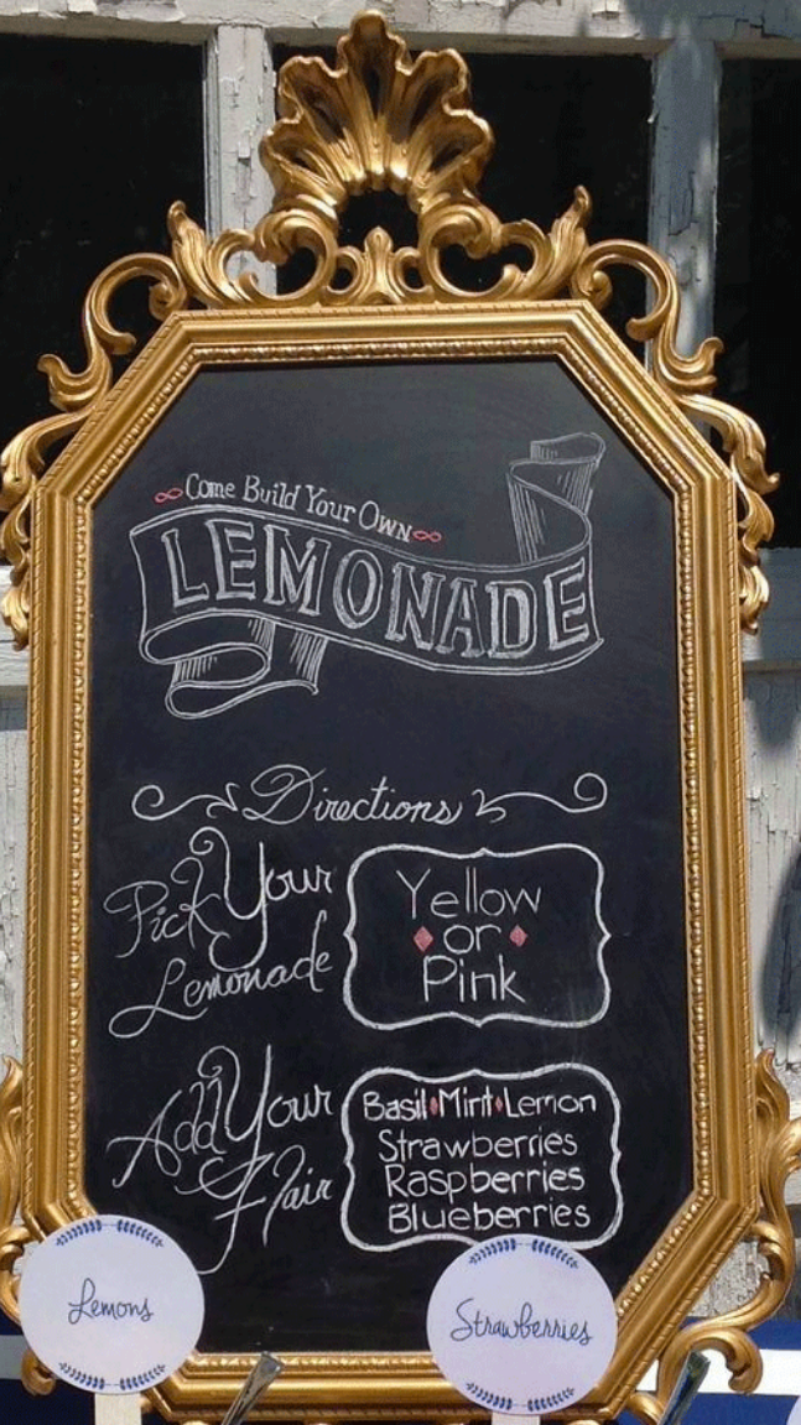 Come Build Your Own
LEMONADE
Directions
Pick Your
Lemonade
Yellow
or
Pink
Add Your
Flair
Basil Mint Lemon
Strawberries
Raspberries
Blueberries
Lemons
Strawberries